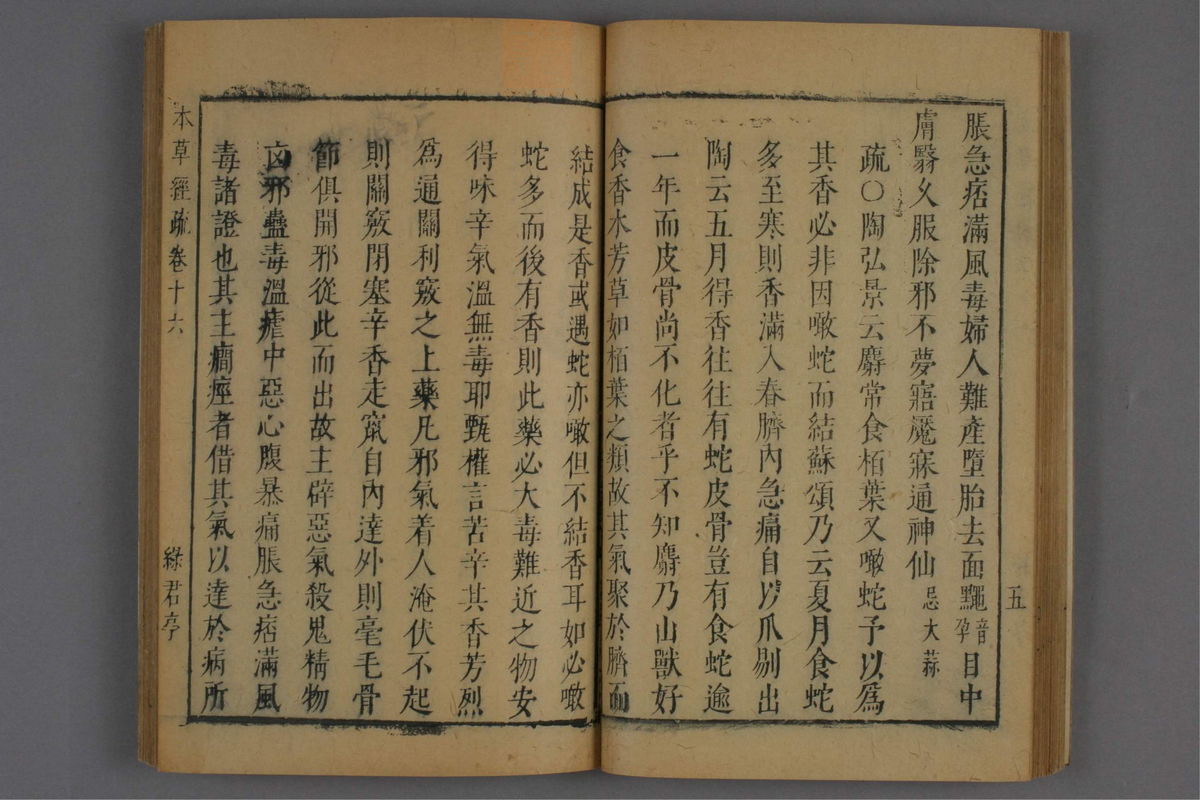 五
脹急痞滿風毒婦人難產墮胎去面䵴音孕目中
膚翳久服除邪不夢寤魘寐通神仙忌大蒜
疏〇陶弘景云麝常食栢葉又噉蛇予以爲
其香必非因噉蛇而結蘇頌乃云夏月食蛇
多至寒則香滿入春臍內急痛自以爪剔出
陶云五月得香往往有蛇皮骨豈有食蛇逾
一年而皮骨尚不化者乎不知麝乃山獸好
食香木芳草如栢葉之類故其氣聚於臍而
結成是香或遇蛇亦噉但不結香耳如必噉
蛇多而後有香則此藥必大毒難近之物安
得味辛氣溫無毒耶甄權言苦辛其香芳烈
爲通關利竅之上藥凡邪氣着人淹伏不起
則關竅閉塞辛香走竄自內達外則毫毛骨
節俱開邪從此而出故主辟惡氣殺鬼精物
凶邪蠱毒溫瘧中惡心腹暴痛脹急痞滿風
毒諸證也其主癎痙者借其氣以達於病所
本草經疏卷十六
綠君亭